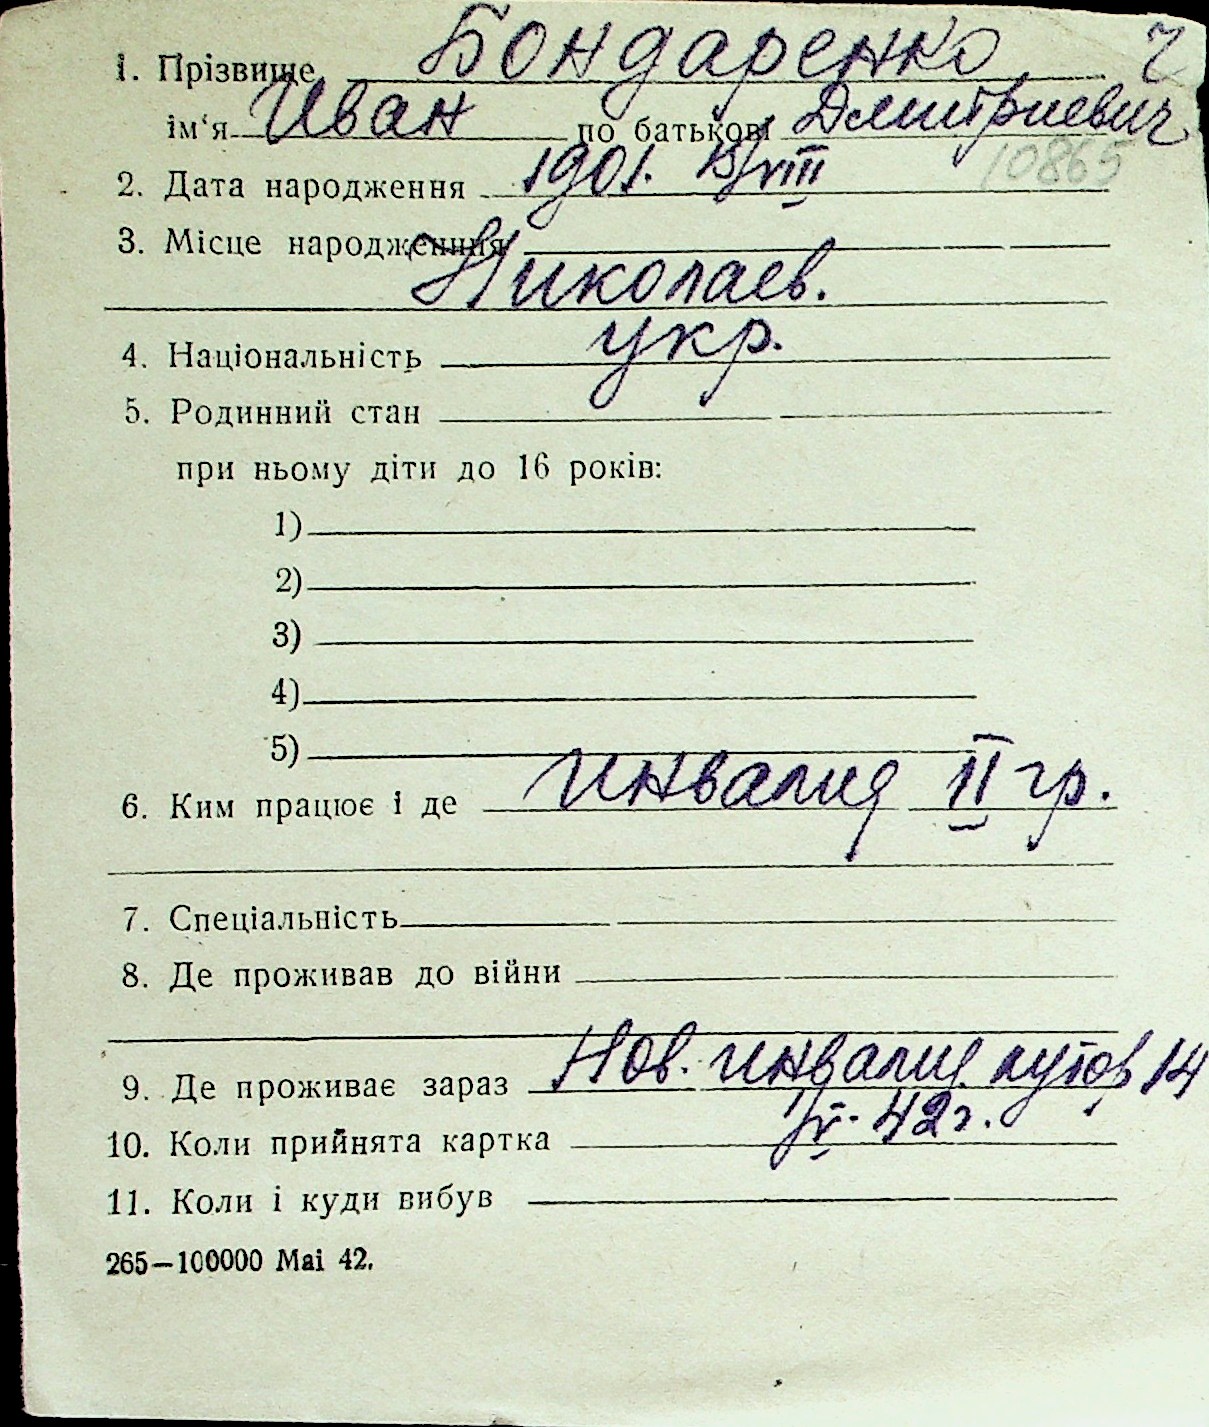 1. Прізвище Бондаренко Ч
ім'я Иван по батькові Дмитриевич
10865
2. Дата народження 1901. 15/VIII
3. Місце народження
Николаев.
4. Національність укр.
5. Родинний стан
при ньому діти до 16 років:
1)
2)
3)
4)
5)
6. Ким працює і де инвалид II гр.
7. Спеціальність
8. Де проживав до війни
9. Де проживає зараз Нов. инвалид хутор 14
10. Коли прийнята картка 1/V- 42 г.
11. Коли і куди вибув
265—100000 Mai 42.